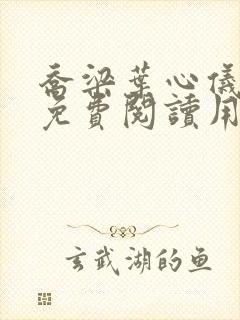 喬梁葉心儀
免費閱讀用
玄武湖的鱼